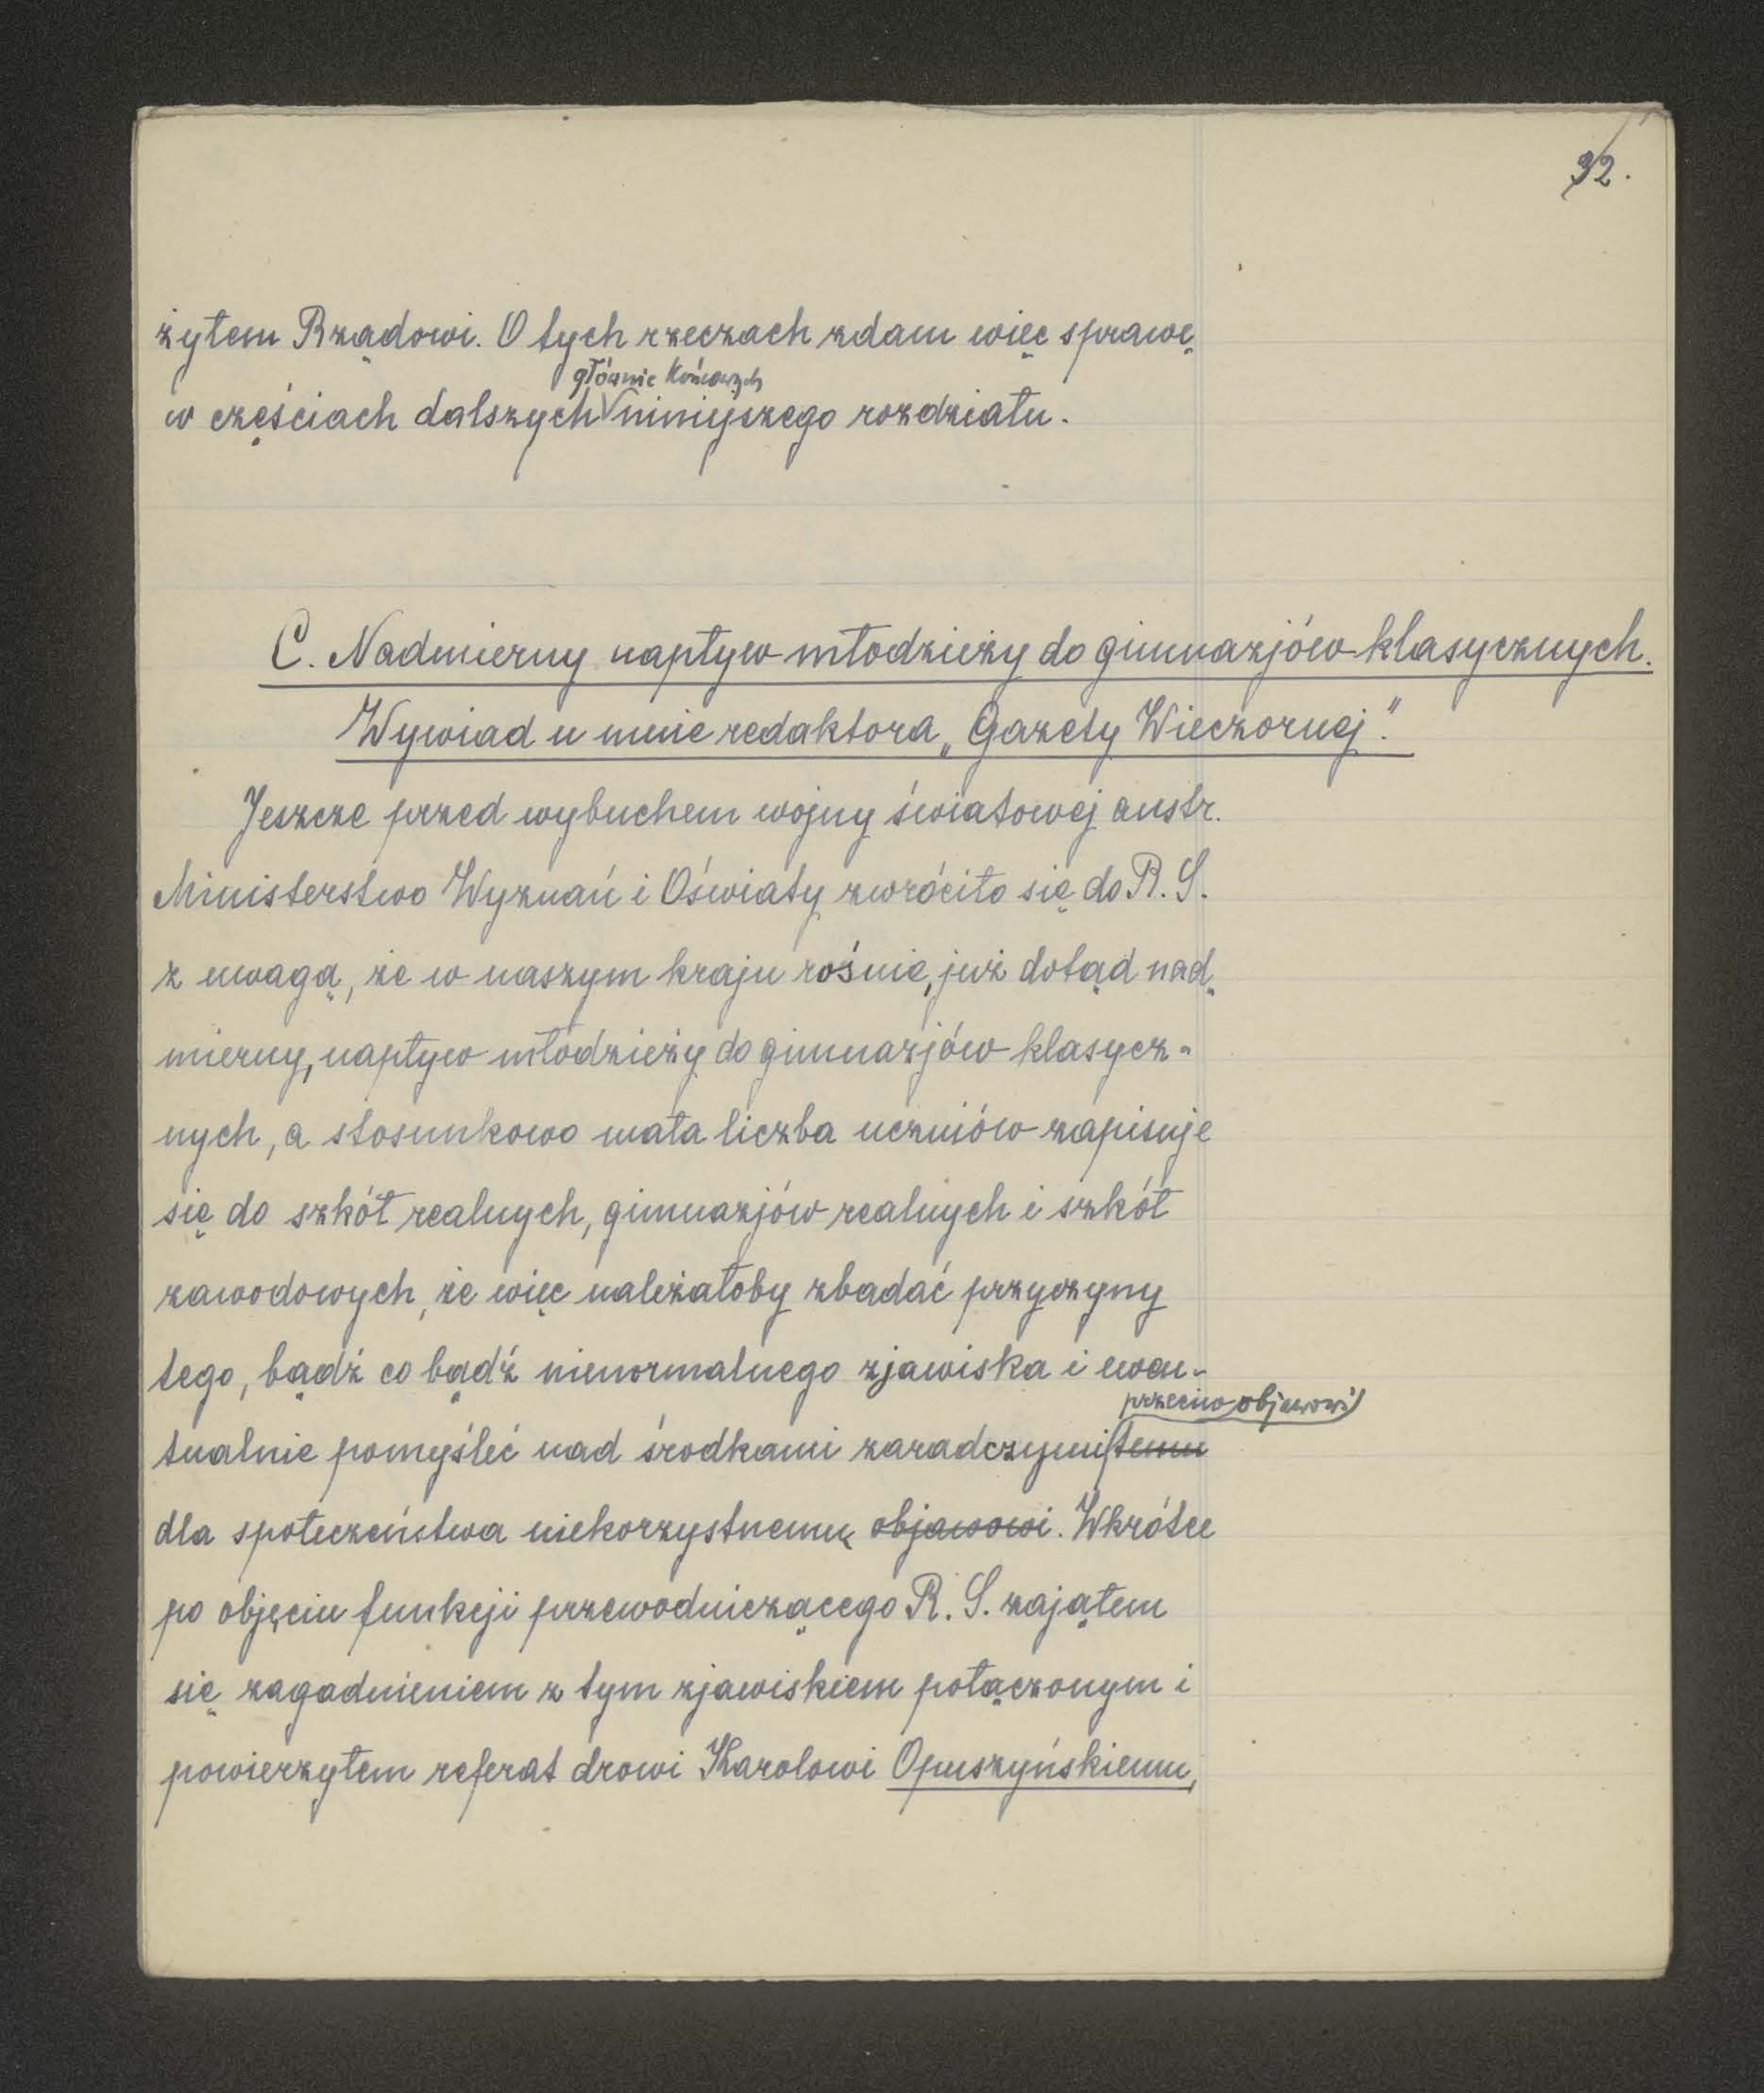 32.
żyłem Rządowi. O tych rzeczach zdam więc sprawę
głównie końcowych
w częściach dalszych niniejszego rozdziału.
C. Nadmierny napływ młodzieży do gimnazjów klasycznych.
Wywiad u mnie redaktora „Gazety Wieczornej".
Jeszcze przed wybuchem wojny światowej austr.
Ministerstwo Wyznań i Oświaty zwróciło się do R. S.
z uwagą, że w naszym kraju rośnie, już dotąd nad-
mierny, napływ młodzieży do gimnazjów klasycz-
nych, a stosunkowo mała liczba uczniów zapisuje
się do szkół realnych, gimnazjów realnych i szkół
zawodowych, że więc należałoby zbadać przyczyny
tego, bądź co bądź nienormalnego zjawiska i ewen-
przeciw objawowi
tualnie pomyśleć nad środkami zaradczymi temu
dla społeczeństwa niekorzystnemu objawowi. Wkrótce
po objęciu funkcji przewodniczącego R. S. zająłem
się zagadnieniem z tym zjawiskiem połączonym i
powierzyłem referat drowi Karolowi Opuszyńskiemu,